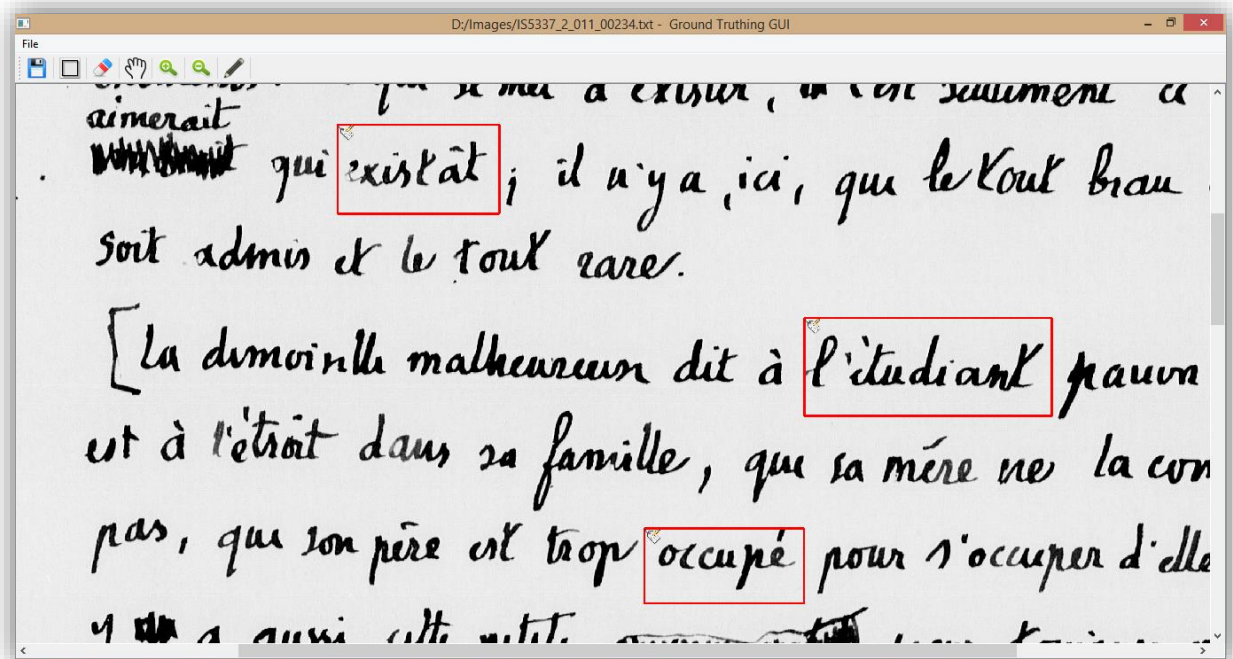 D:/Images/IS5337_2_011_00234.txt - Ground Truthing GUI
File
qui se met à exister, c'est seulement
aimerait
qui existât ; il n'y a, ici, que le tout beau
soit admis et le tout rare.
[La demoiselle malheureuse dit à l'étudiant pauvre
est à l'étroit dans sa famille, que sa mére ne la com
pas, que son père est trop occupé pour s'occuper d'elle
y a aussi cette petite